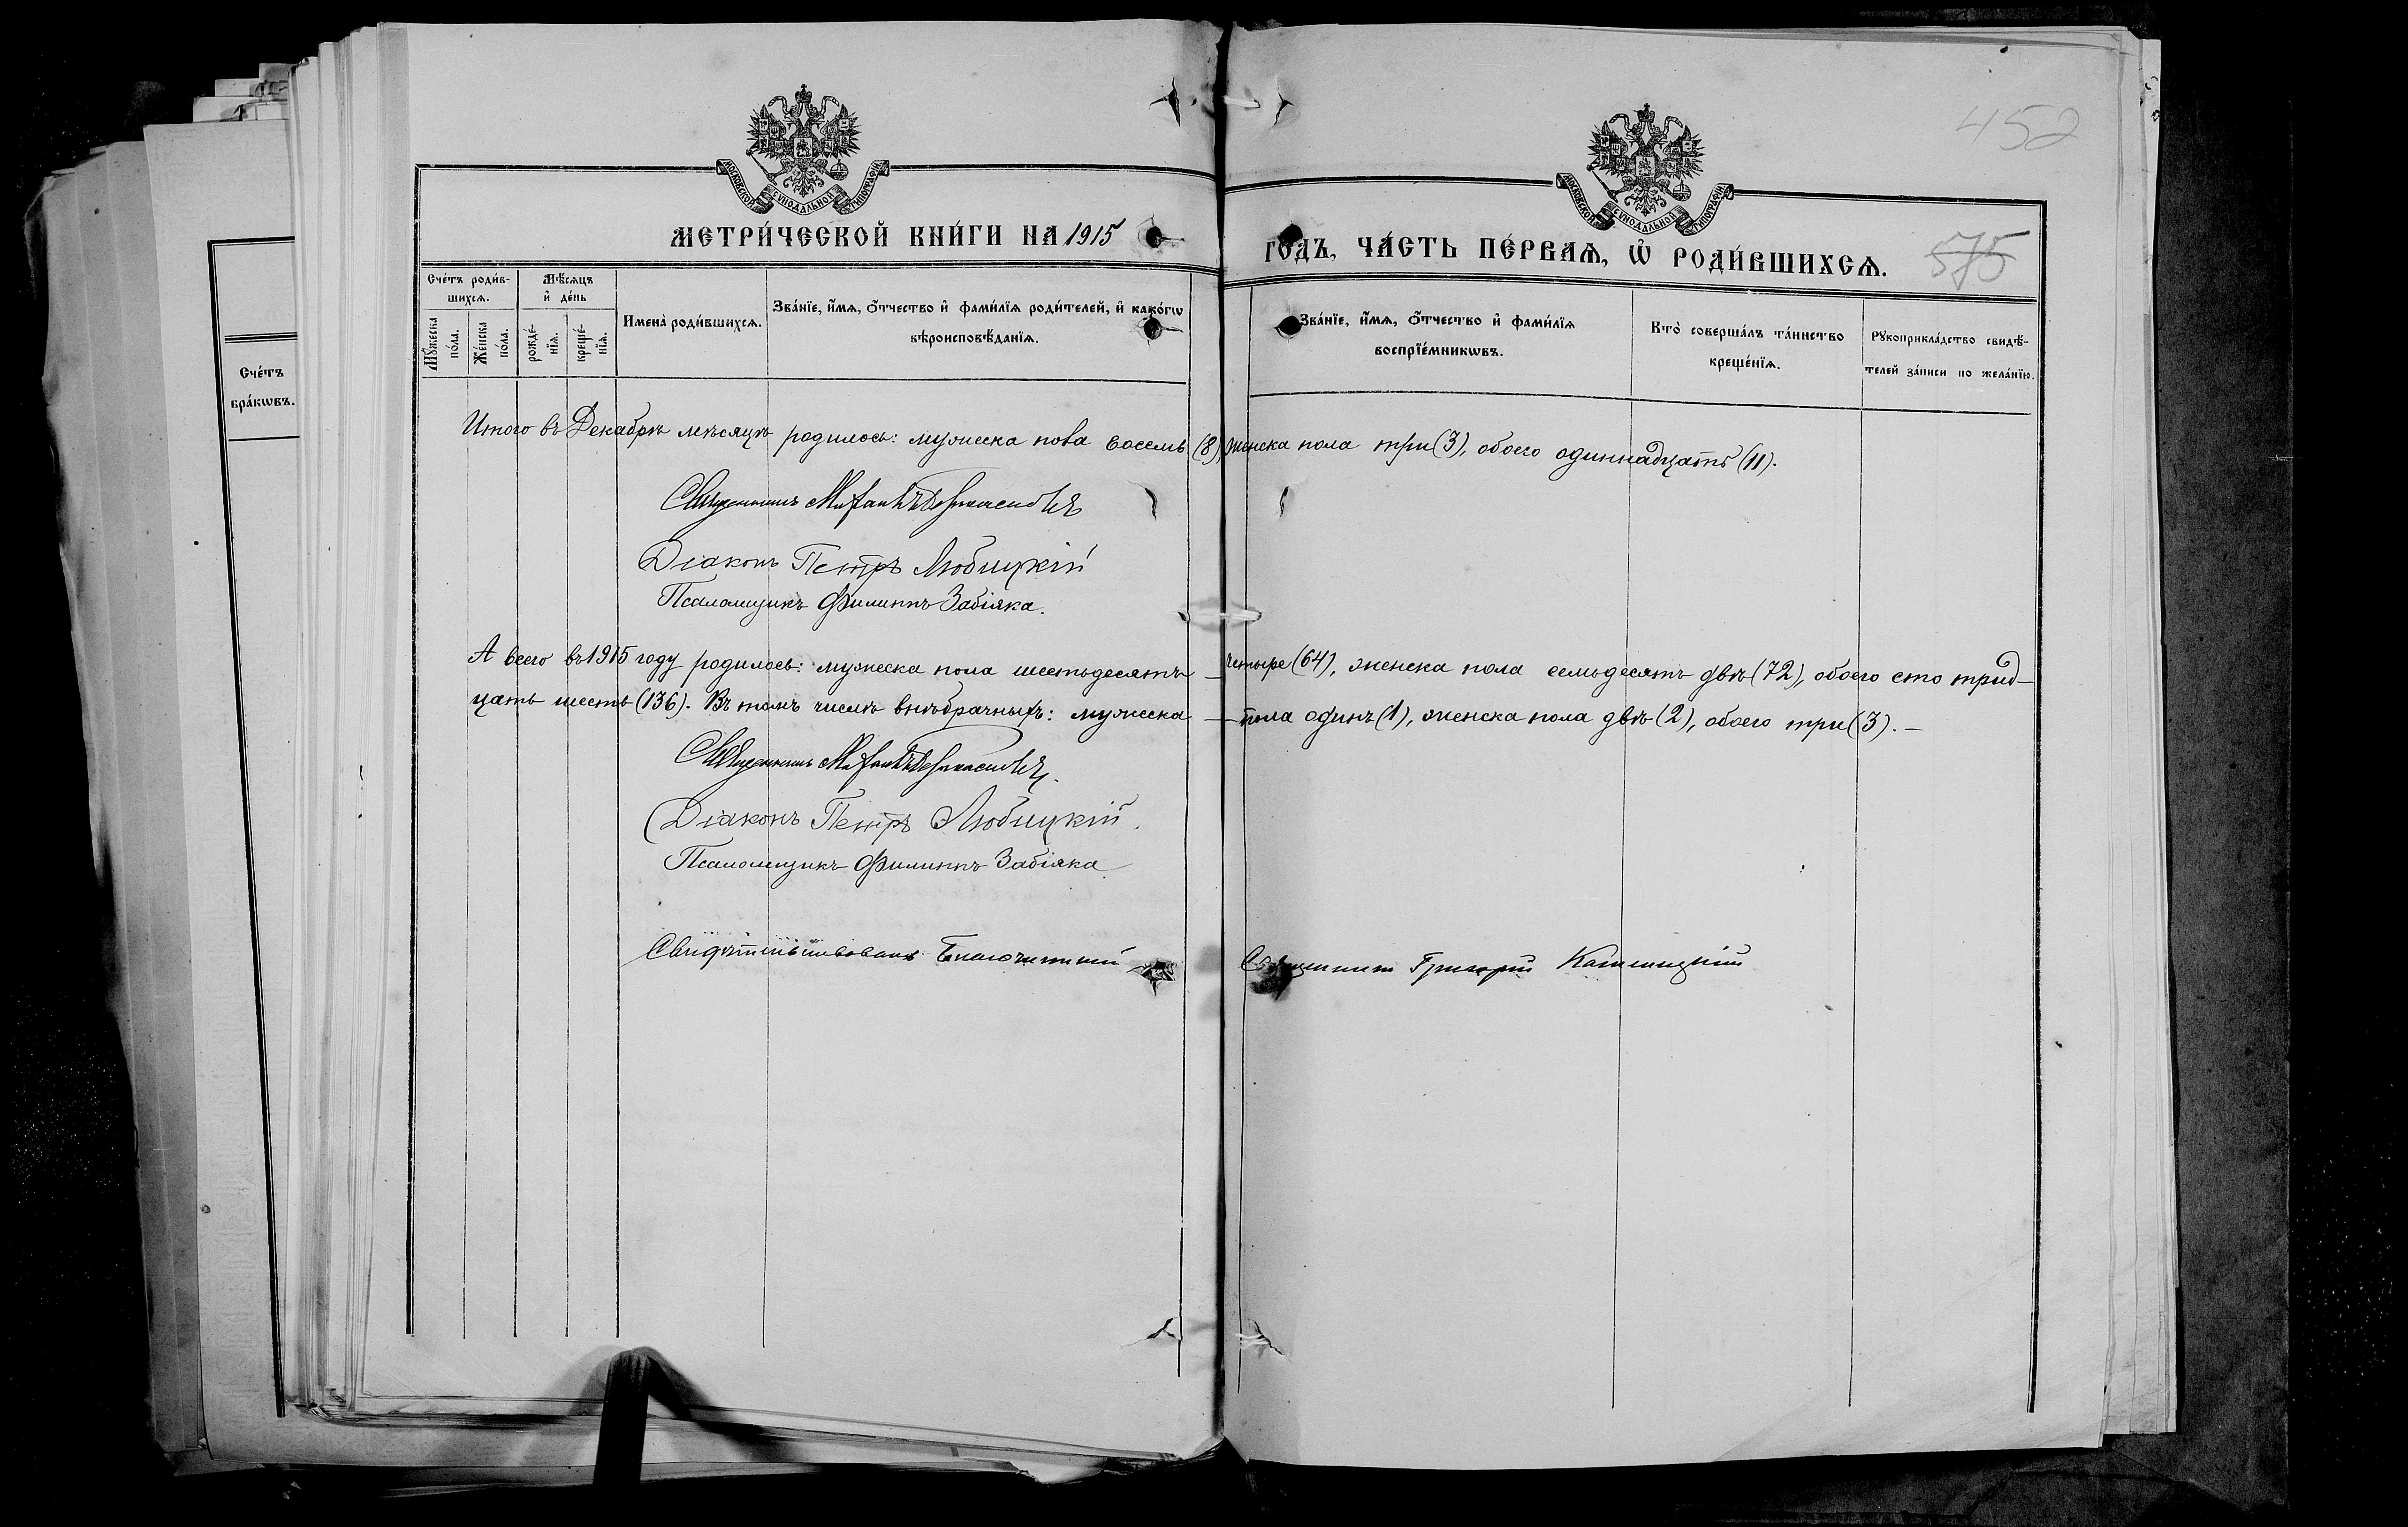 452
МОСКОВСКОЙ СѴНОДАЛЬНОЙ ТИПОГРАФІИ
МОСКОВСКОЙ СѴНОДАЛЬНОЙ ТИПОГРАФІИ
МЕТРИ́ЧЕСКОЙ КНИ́ГИ НА 1915 ГОДЪ, ЧА́СТЬ ПЕ́РВАѦ, Ѡ҆ РОДИ́ВШИХСѦ. 575
Сче́тъ бра́кѡвъ.
Сче́тъ роди́вшихсѧ.
Мꙋ́жеска по́ла.
Же́нска по́ла.
Мѣ́сѧцъ и҆ де́нь
рожде́нїѧ.
креще́нїѧ.
Имена̀ роди́вшихсѧ.
Зва́нїе, и҆́мѧ, ѻ҆́тчество и҆ фами́лїѧ роди́телей, и҆ како́гѡ вѣроисповѣ́данїѧ.
Зва́нїе, и҆́мѧ, ѻ҆́тчество и҆ фами́лїѧ воспрїе́мникѡвъ.
Кто̀ соверша́лъ та́инство креще́нїѧ.
Рꙋкоприкла́дство свидѣ́телей за́писи по жела́нїю.
Итого въ Декабрѣ мѣсяцѣ родилось: мужеска пола восемь (8), женска пола три (3), обоего одиннадцать (11).
Священникъ
Діаконъ Петръ Любицкій
Псаломщикъ Филиппъ Забіяка.
А всего въ 1915 году родилось: мужеска пола шестьдесятъ – четыре (64), женска пола семьдесятъ двѣ (72), обоего сто трид-
цать шесть (136). Въ томъ числѣ внѣбрачныхъ: мужеска – пола одинъ (1), женска пола двѣ (2), обоего три (3). –
Священникъ
Діаконъ Петръ Любицкій.
Псаломщикъ Филиппъ Забіяка
Свидѣтельствовалъ Благочинный Священникъ Григорій